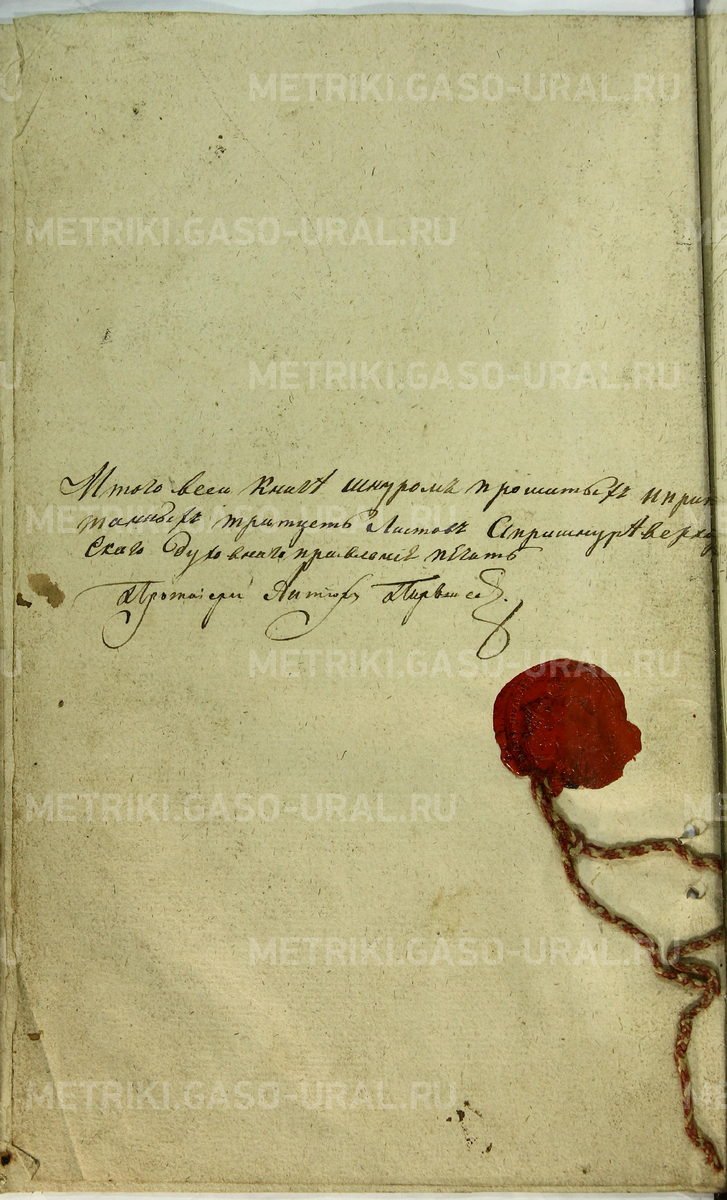 METRIKI.GASO-URAL.RU
METRIKI.GASO-URAL.RU
METRIKI.GASO-URAL.RU
Итого всеи книгѣ шнуромъ прошитыхъ ипри
танныхъ тратцеть Листовъ Апришнурѣ верхо
скаго духовнаго правленiе печать
Протоiерей
METRIKI.GASO-URAL.RU
METRIKI.GASO-URAL.RU
METRIKI.GASO-URAL.RU
METRIKI.GASO-URAL.RU
METRIKI.GASO-URAL.RU